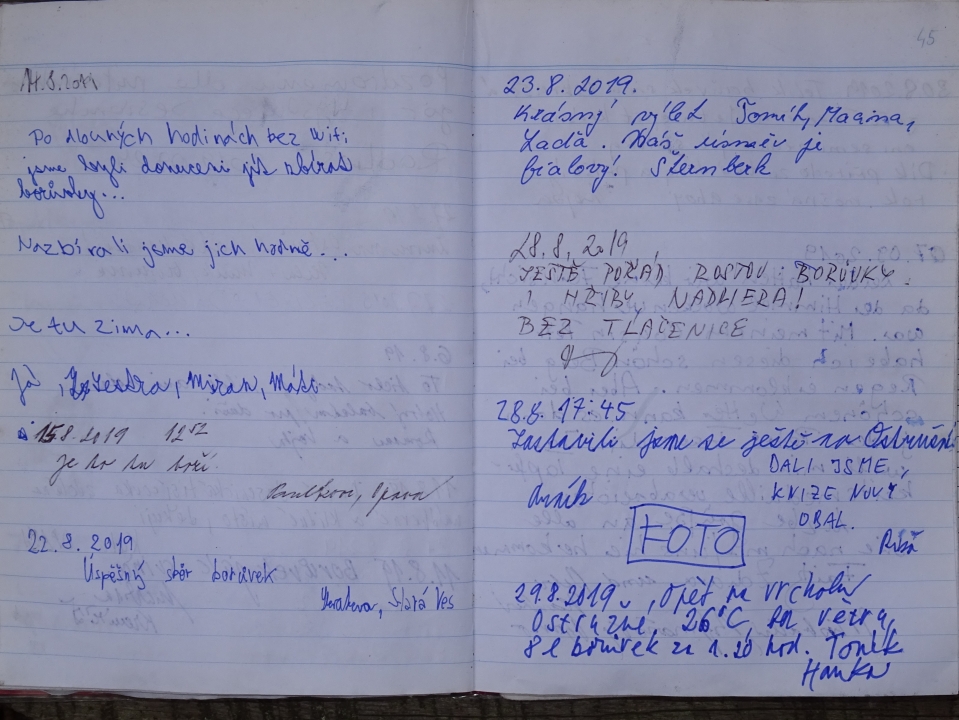 14.8.2019
Po dlouhých hodinách bez wifi
jsme byli donuceni jít sbírat
borůvky...
Nazbírali jsme jich hodně...
Je tu zima...
Já, Miran,
15.8.2019 12
je to tu boží
Opava
22.8.2019
Úspěšný sběr borůvek
Stará Ves
45
23.8.2019.
Krásný výlet Tomík,
Laďa. Náš úsměv je
fialový! Šternberk
28.8.2019
JEŠTĚ POŘÁD ROSTOU BORŮVKY
I HŘIBY, NÁDHERA!
BEZ TLAČENICE
28.8. 17:45
Zastavili jsme se ještě na
DALI JSME
KNIZE NOVÝ
OBAL.
FOTO
29.8.2019 Opět na vrcholu
Ostružné, 26°C, větru,
8 l borůvek za 1.20 hod. Toník
Hanka